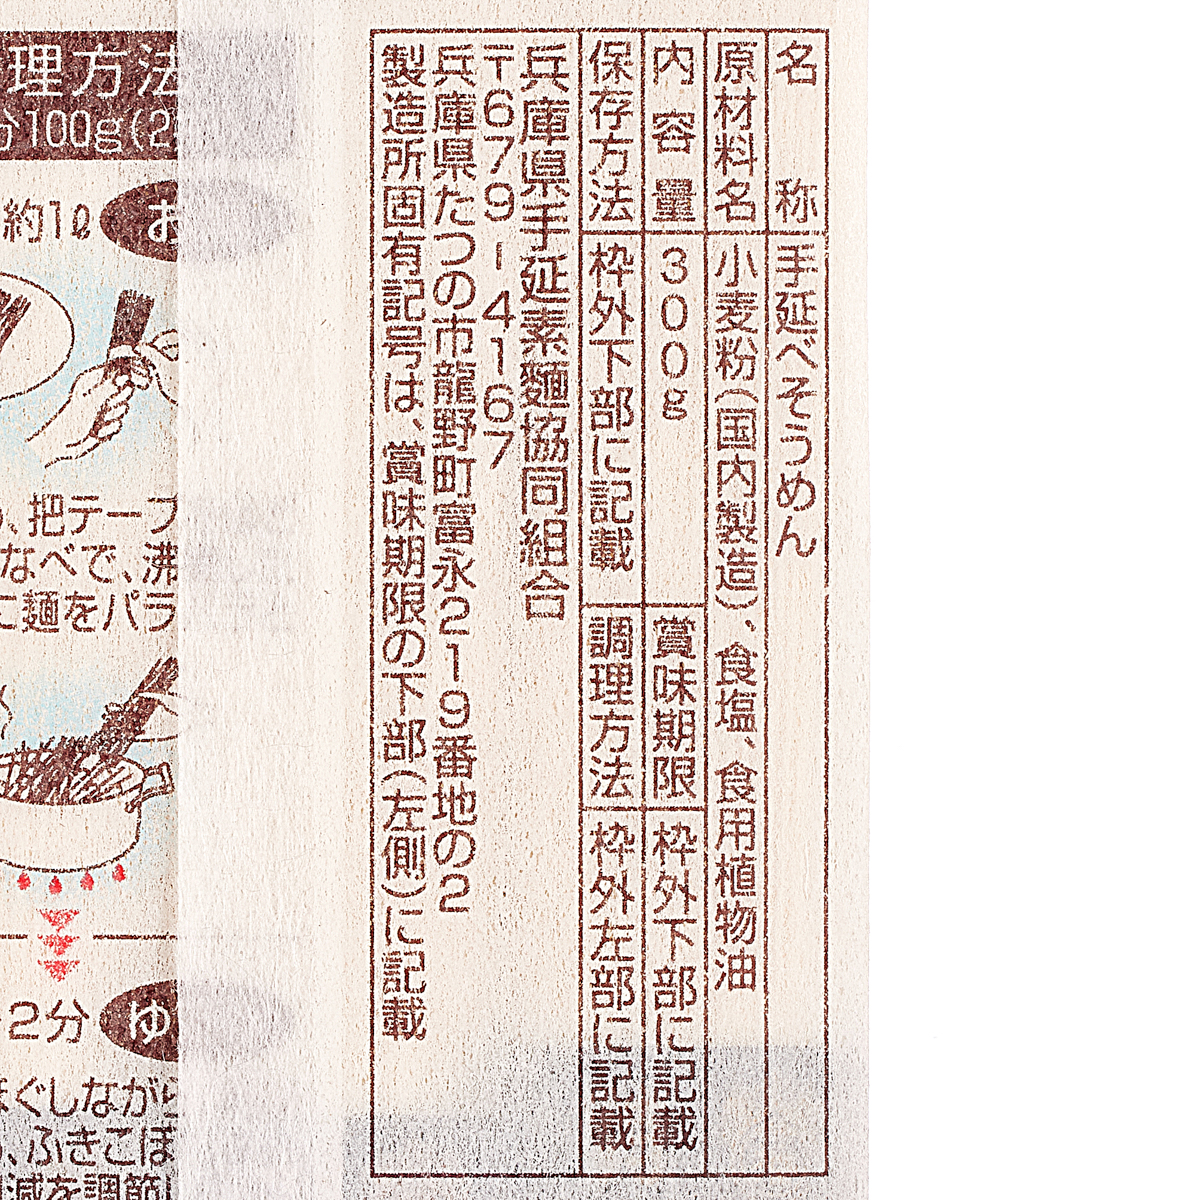 名称 手延べそうめん
原材料名 小麦粉(国内製造)、食塩、食用植物油
内容量 300g
賞味期限 枠外下部に記載
保存方法 枠外下部に記載
調理方法 枠外左部に記載
兵庫県手延素麵協同組合
〒679-4167
兵庫県たつの市龍野町富永219番地の2
製造所固有記号は、賞味期限の下部(左側)に記載
理方法
分100g(2
約1ℓ
お
、把テープ
なべで、沸
に麺をパラ
2分
ゆ
ほぐしながら
、ふきこぼ
減を調節し